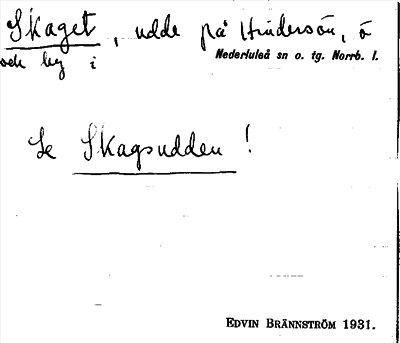 Skaget, udde på Hindersön, ö
och by i Nederluleå sn o. tg. Norrb. l.
Se Skagsudden!
EDVIN BRÄNNSTRÖM 1931.